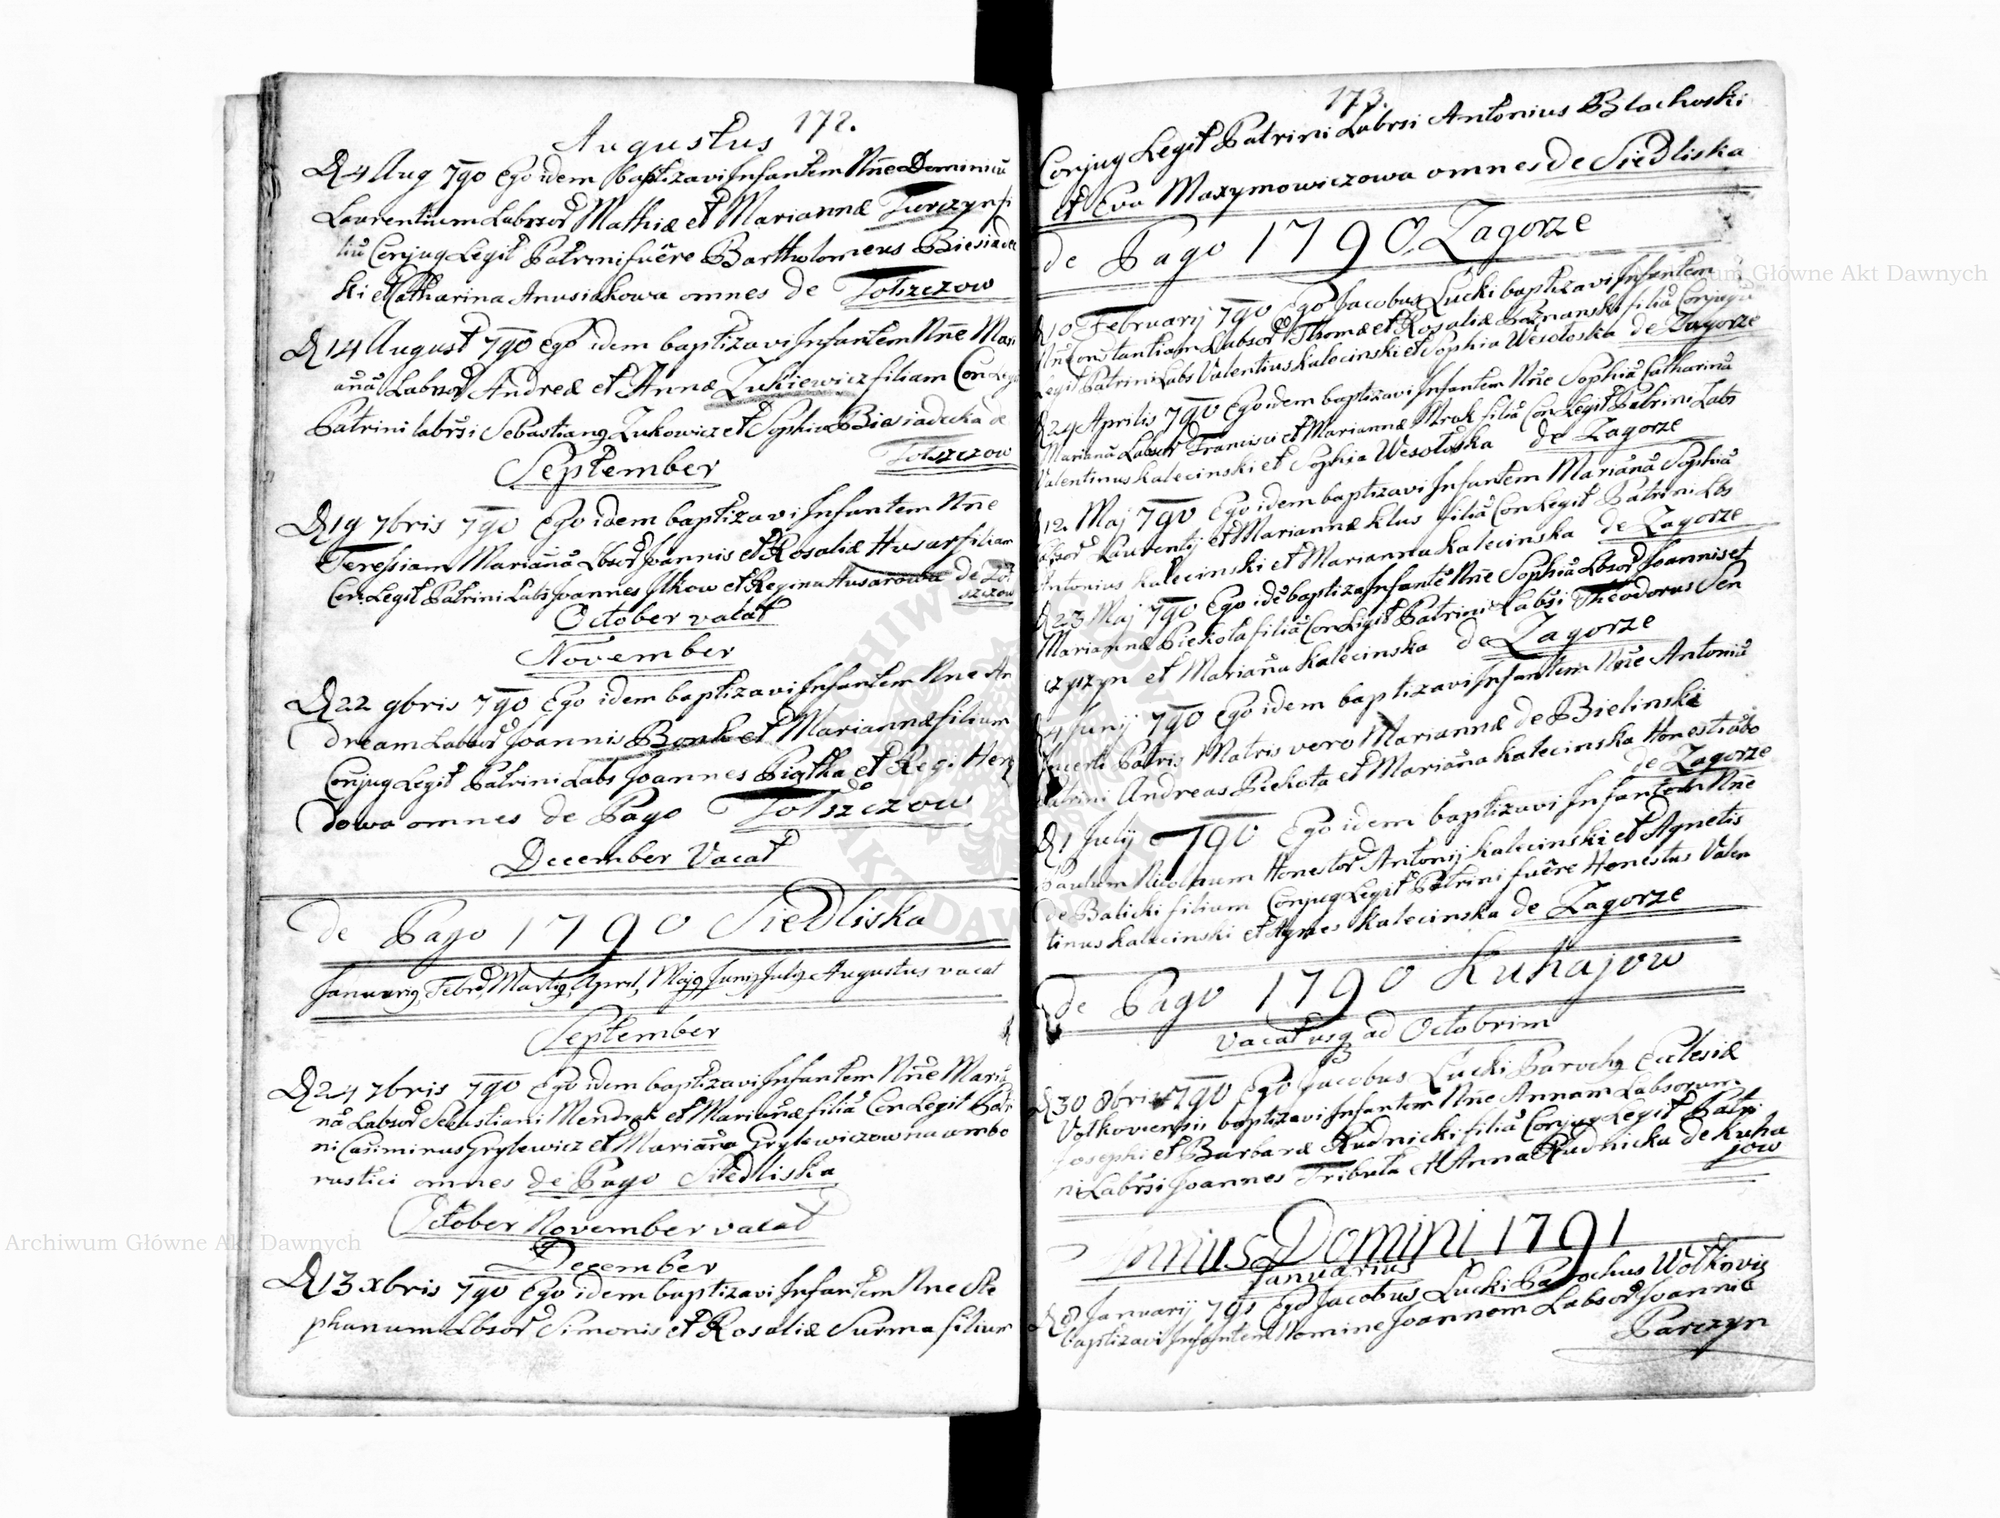 172.
Augustus
D 4 Aug 790 Ego idem baptizavi Infantem Nne Dominicū
Laurentium Labrsor Mathiæ et Mariannæ Turczyn fi
liū Conjug Legit Patrini fuēre Bartholomeus Biesiadec
ki et Catharina Anusiakowa omnes de Tolszczow
D 14 August 790 Ego idem baptizavi Infantem Nne Mari
anā Labrsor Andreæ et Annæ Zukiewicz filiam Con Leg
Patrini labrsi Sebastiang Zukowicz et Sophia Biesiadecka de
Tolszczow
September
D 19 7bris 790 Ego idem baptizavi Infantem Nne
Teressiam Mariānā Lbsor Joannis et Rosaliæ Husar filiam
Con Legit Patrini Labs Joannes Ilkow et Regina Husarowa de Tol
szczow
October vacat
November
D 22 9bris 790 Ego idem baptizavi Infantem Nne An
dream Labsor Joannis Bonk et Mariannæ filium
Conjug Legit Patrini Labs Joannes Piątka et Regi Hen
dowa omnes de Pago Tolszczow
December Vacat
de Pago 1790 Siedliska
Januarig, Febr, Martig, April, Majg, Junig, Julig, Augustus vacat
September
D 24 7bris 790 Ego idem baptizavi Infantem Nne Mariā
nā Labsor Sebastiani Mendrak et Mariānæ filiā Con Legit Patri
ni Casimirus Grylewicz et Mariāna Grylewiczowna ambo
rustici omnes de Pago Siedliska
October November vacat
December
D 13 xbris 790 Ego idem baptizavi Infantem Nne Ste
phanum Lbsor Simonis et Rosaliæ Surma filium
173.
Conjug Legit Patrini Labrsi Antonius Blachoski
et Eva Maxymowiczowa omnes de Siedliska
de Pago 1790 Zagorze
D 10 February 790 Ego Jacobus Lucki baptizavi Infantem
Nne Constantiam Labsor Thomæ et Rosaliæ Poznanski filiā Conjugū
Legit Patrini Labs Valentius Kalecinski et Sophia Wesołoska de Zagorze
D 24 Aprilis 790 Ego idem baptizavi Infantem Nne Sophiā Catharinā
Marianā Labsor Francisci et Mariannæ Mruk filiā Con Legit Patrini Labs
Valentinus Kalecinski et Sophia Wesołoska de Zagorze
D 12 Maj 790 Ego idem baptizavi Infantem Mariānā Sophiā
Labsor Laurentij et Mariannæ Klus filiā Con Legit Patrini Lbs
Antonius Kalecinski et Marianna Kalecinska de Zagorze
D 23 Maj 790 Ego idē baptiza Infantē Nne Sophiā Lbsor Joannis et
Mariannæ Piekota filiā Con Legit Patrini Labsi Theodorus Sen
czyszyn et Mariāna Kalecinska de Zagorze
D 4 Junij 790 Ego idem baptizavi Infantem Nne Antoniū
Incerti Patris Matris vero Mariannæ de Bielinski
Patrini Andreas Piekota et Mariāna Kalecinska Honesti ābo
de Zagorze
D 1 July 790 Ego idem baptizavi Infantem Nne
Paulum Nicolaum Honestor Antonij Kalecinski et Agnetis
de Balicki filium Conjug Legit Patrini fuēre Honestus Valen
tinus Kalecinski et Agnes Kalecinska de Zagorze
de Pago 1790 Kuhajow
Vacat usq ad Octobrim
D 30 8bris 790 Ego Jacobus Lucki Parochg Ecclesiæ
Volkoviensis baptizavi Infantem Nne Annam Labsorum
Josephi et Barbaræ Rudnicki filiā Conjug Legit Patri
ni Labrsi Joannes Tribuła et Anna Rudnicka de Kuha
jow
Annus Domini 1791
Januarius
D 8 Januarij 791 Ego Jacobus Lucki Parochus Wołkovig
baptizavi Infantem Nomine Joannem Labsor Joannis
Parczyn
Archiwum Główne Akt Dawnych